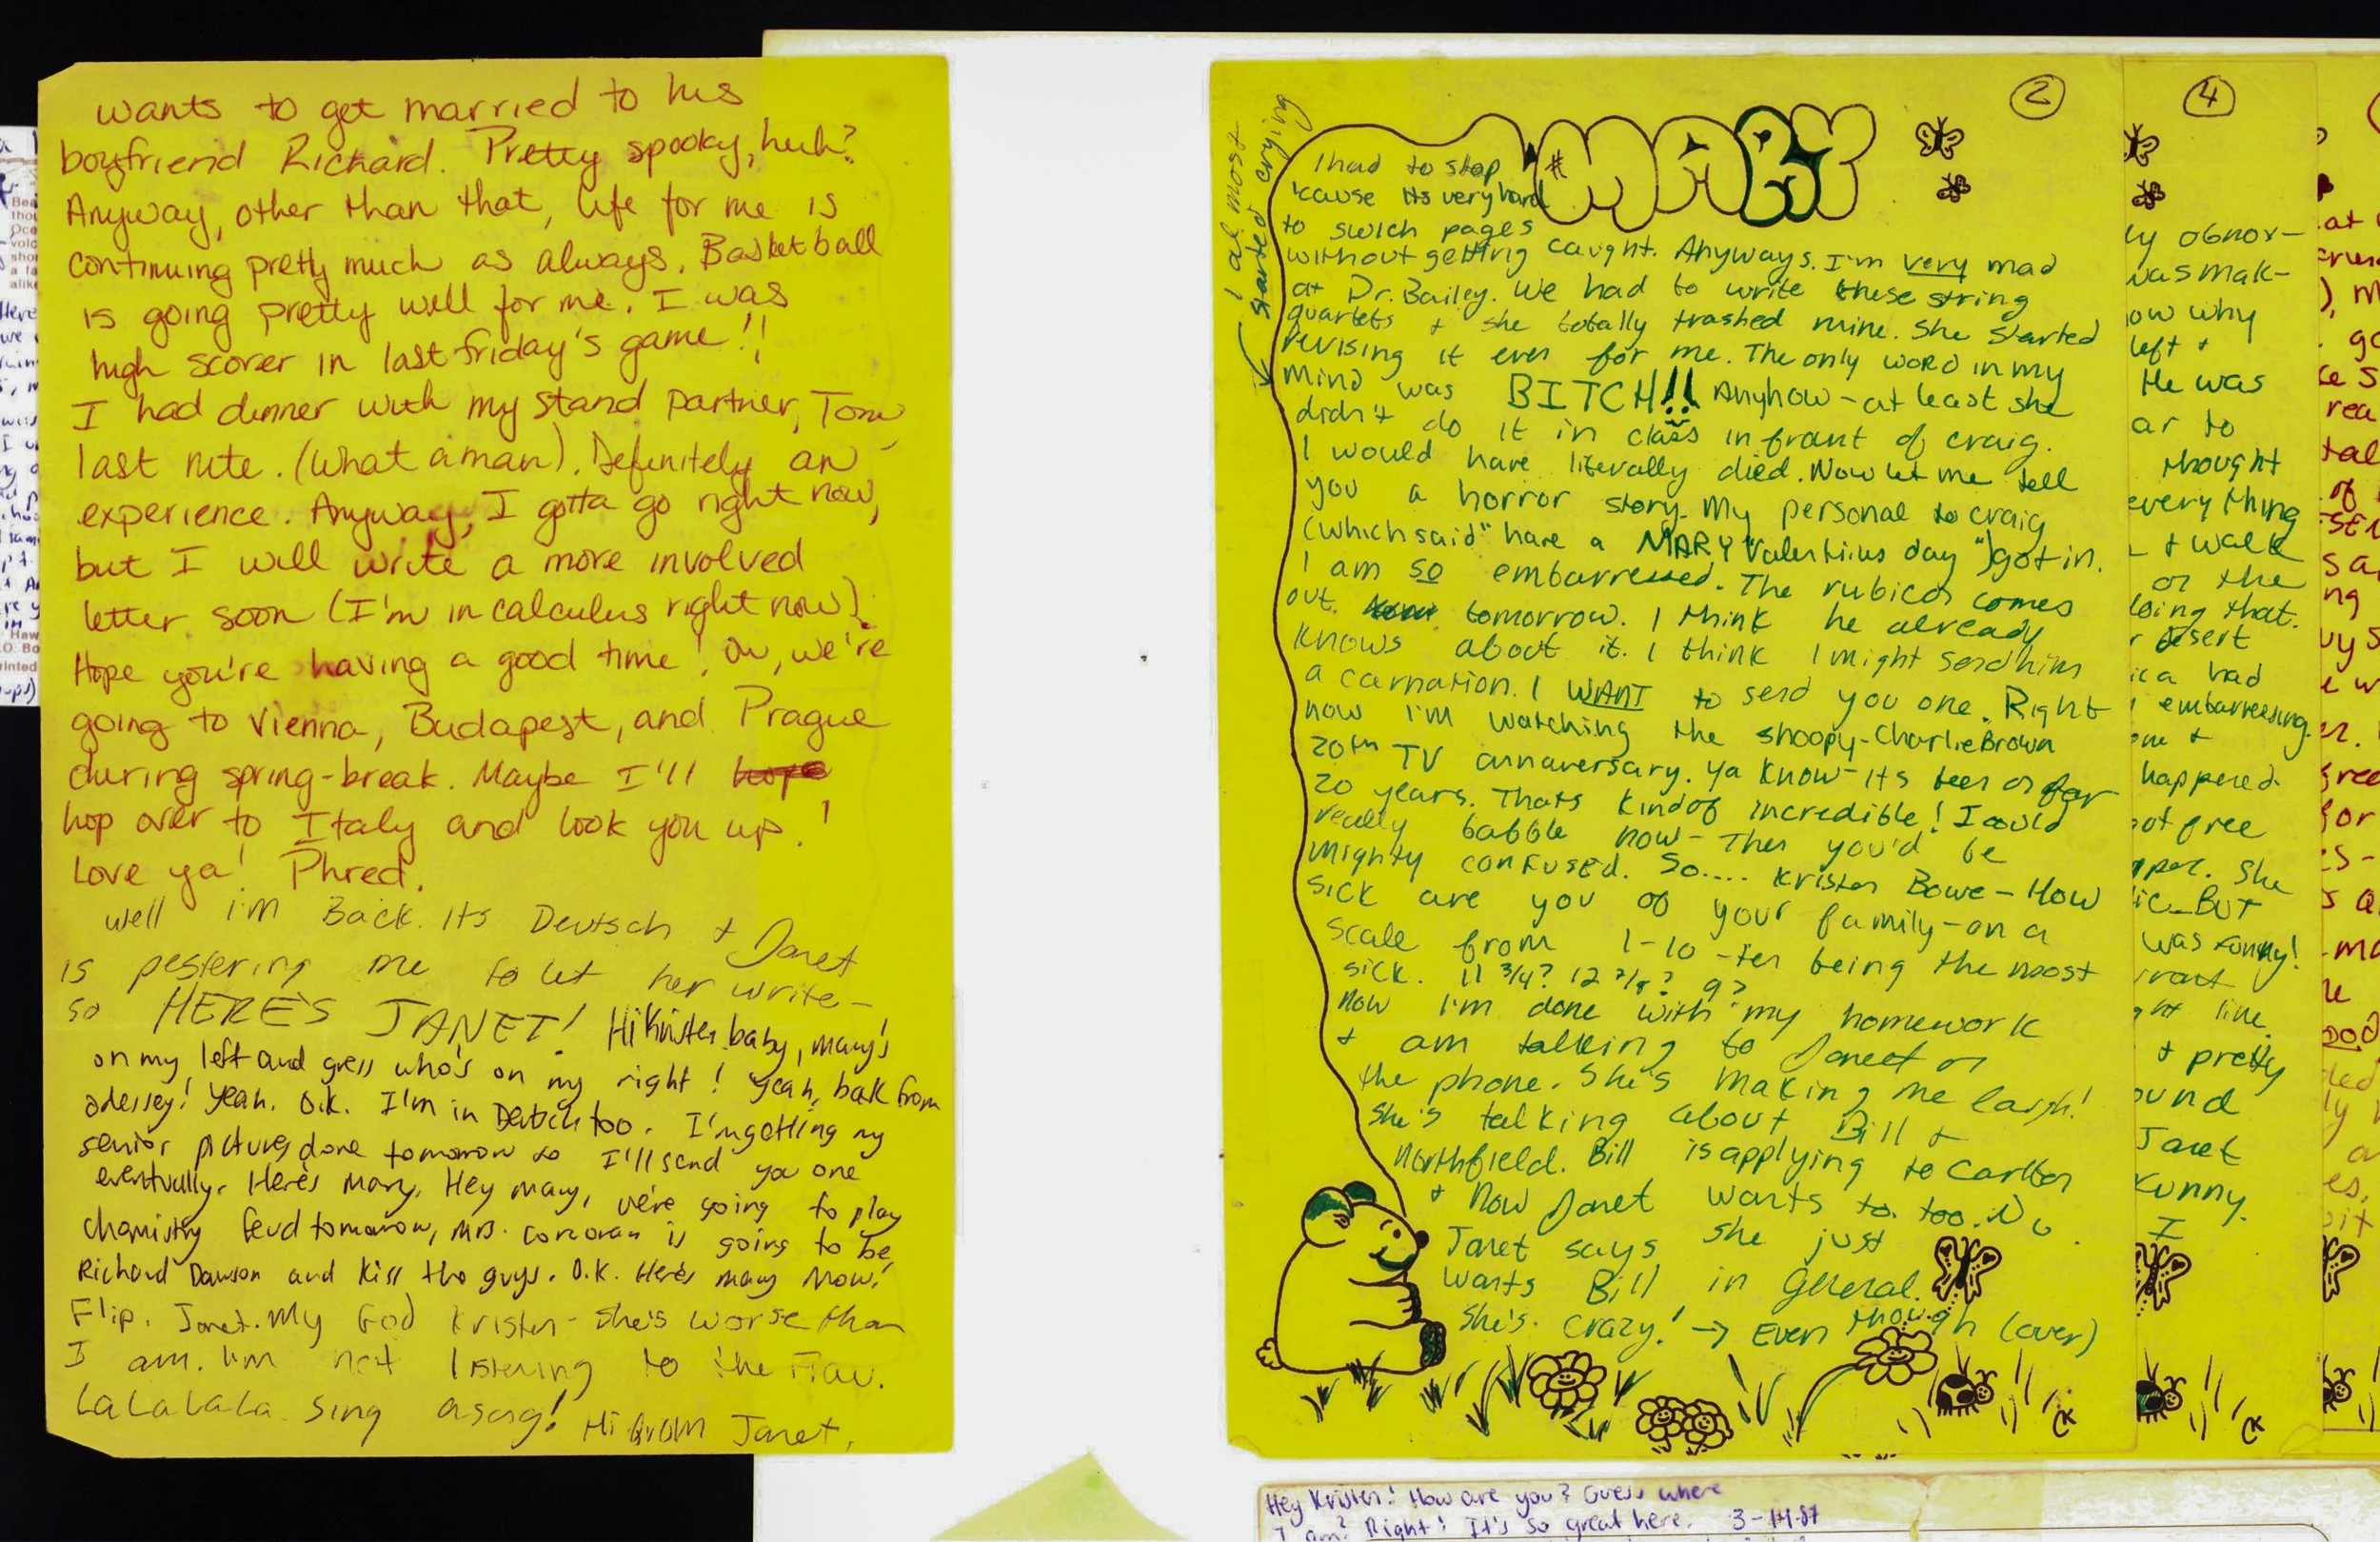 wants to get married to his
boyfriend Richard. Pretty spooky, huh?
Anyway, other than that, life for me is
continuing pretty much as always. Basketball
is going pretty well for me. I was
high scorer in last friday's game!!
I had dinner with my stand partner, Tom,
last nite. (What a man). Definitely an
experience. Anyway, I gotta go right now,
but I will write a more involved
letter soon (I'm in calculus right now).
Hope you're having a good time! Ow, we're
going to Vienna, Budapest, and Prague
during spring-break. Maybe I'll hope
hop over to Italy and look you up!
Love ya! Phred.
well i'm Back. Its Deutsch + Janet
is pestering me to let her write-
so HERE'S JANET! Hi Kristen baby, Mary's
on my left and gress who's on my right! Yeah, bak from
odessey! Yeah. O.K. I'm in Deutch too. I'm getting my
senior pictures done tomorrow so I'll send you one
eventually. Here's Mary, Hey Mary, we're going to play
chemistry feud tomorrow, Mrs. Corcoran is going to be
Richard Dawson and kiss the guys. O.K. Here's Mary Now!
Flip. Janet. My God Kristen- she's worse than
I am. I'm not listening to the
LaLaLaLa. Sing asong! Hi from Janet,
2
MARY
I almost started crying
I had to stop
'cause its very hard
to swich pages
without getting caught. Anyways. I'm very mad
at Dr. Bailey. We had to write these string
quartets + she totally trashed mine. She started
revising it even for me. The only word in my
mind was BITCH!! Anyhow - at least she
didn't do it in class infrant of craig.
I would have literally died. Now let me tell
you a horror story. My personal to craig
(which said "have a MARY Valentines day") got in.
I am so embarressed. The rubicon comes
out tomorrow. I think he already
knows about it. I think I might send him
a carnation. I WANT to send you one. Right
now I'm watching the snoopy-Charlie Brown
20th TV annaversary. Ya know-its been on for
20 years. Thats kindof incredible! I could
really babble now- Then you'd be
mighty confused. So.... Kristen Bowe - How
sick are you of your family-on a
scale from 1-10 -ten being the most
sick. 11 3/4? 12 7/8? 9?
now I'm done with my homework
+ am talking to Janet on
the phone. She's making me laugh!
she's talking about Bill +
Northfield. Bill is applying to Carlton
+ now Janet wants to. too.
Janet says she just
wants Bill in general.
She's crazy! → Even though (over)
CK
4
ly obnox-
was mak-
ow why
left +
He was
ar to
thought
everything
+ walk
or the
doing that.
desert
ica had
embarressing.
one +
happened.
not free
per. She
ic. BUT
was funny!
front
ght line.
+ pretty
ound
Janet
Kunny.
I
CK
Hey Kristen! How are you? Guess where
I am? Right! It's so great here. 3-14-87